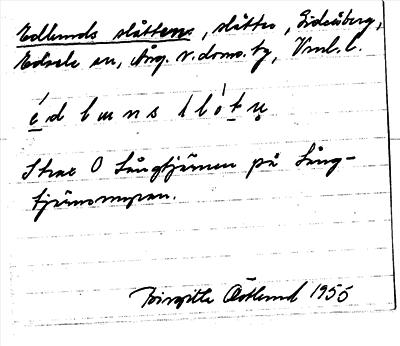 Edlunds slåttens, slåtter, Gideåberg,
Edsele sn, Ång. v. doms. tg, Vml. l.
é d l u n s l l ó t
Strax O Långtjärnen på Lång-
tjärnsmyran.
Birgitta Östlund 1955